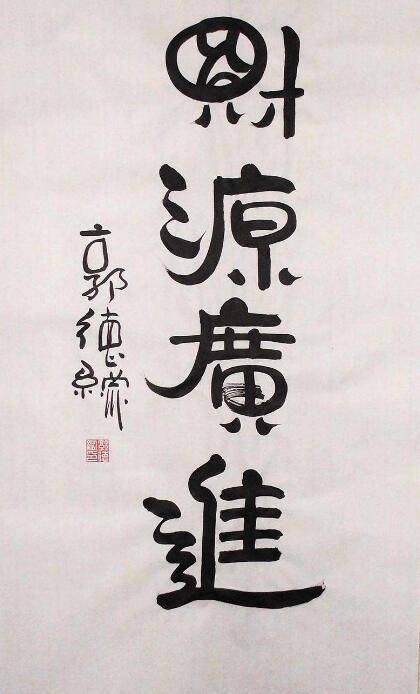 財源廣進
郭德綱